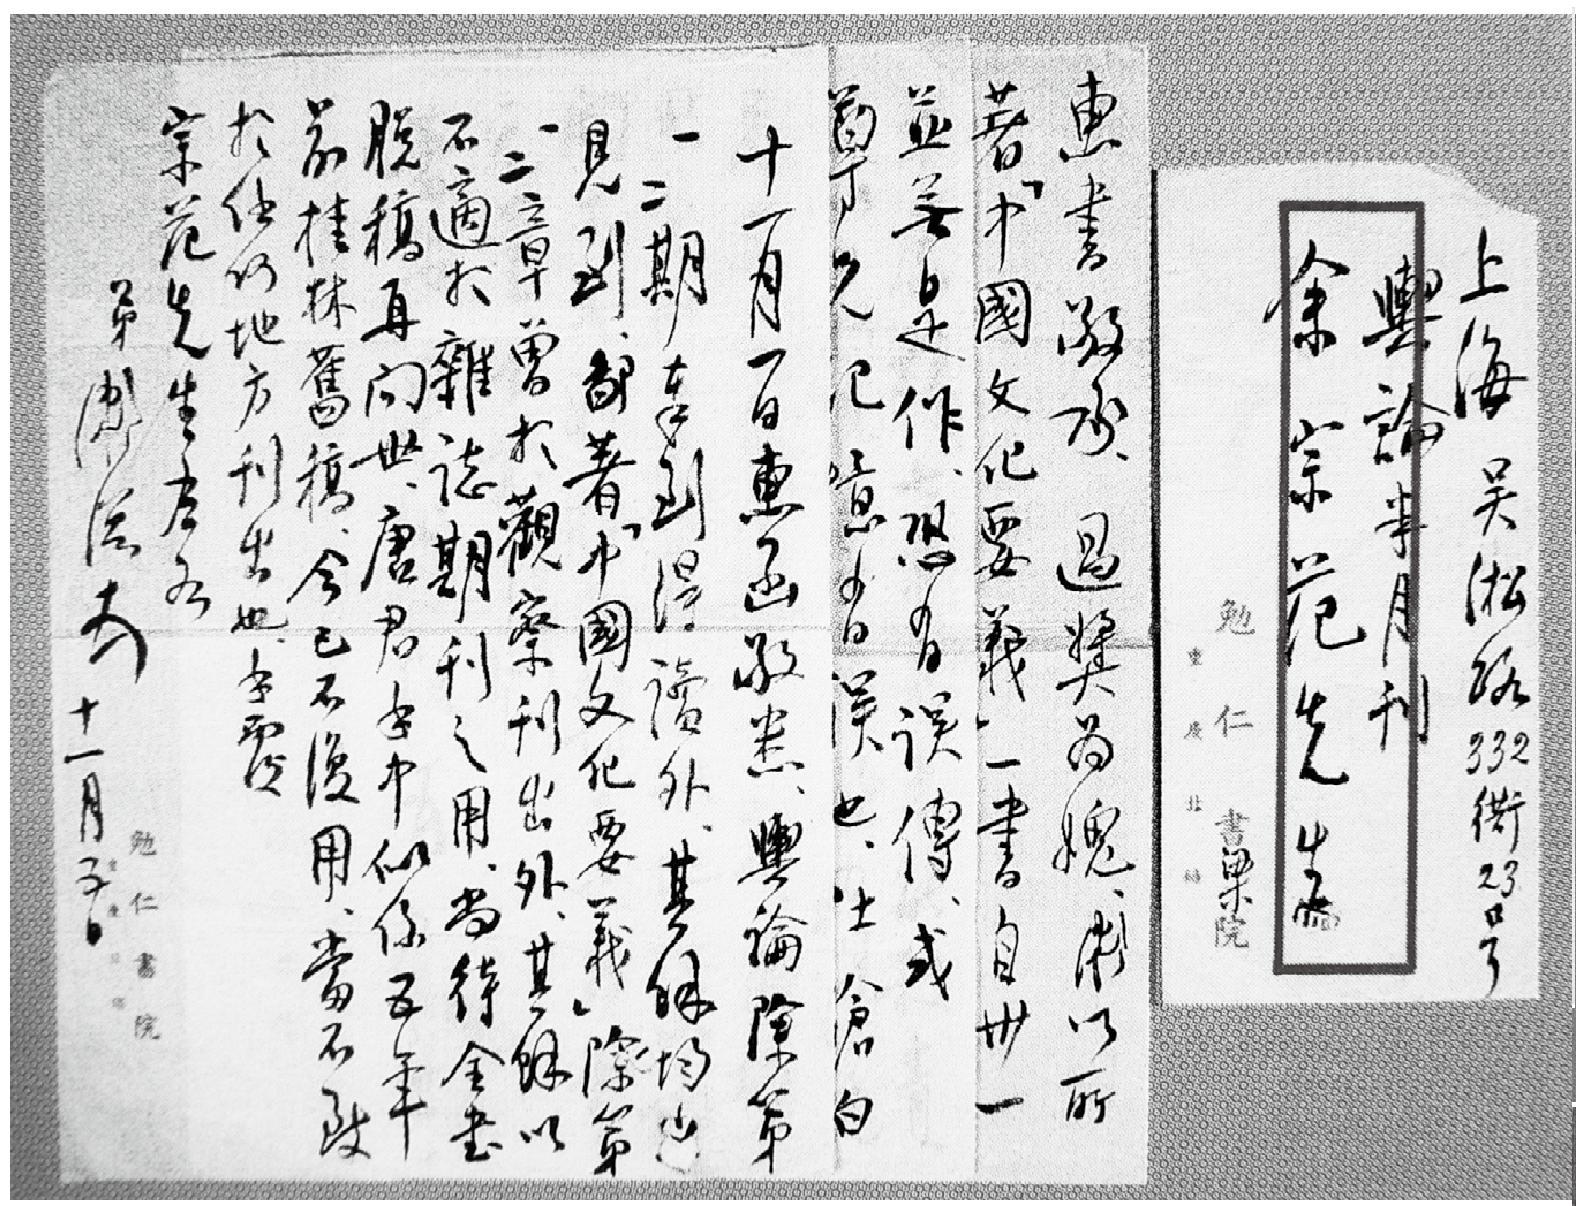 上海吳淞路332衖23号
輿論半月刊
余宗范先生
勉仁書院
梁
重慶北碚
惠書敬承、過獎為愧、漱以所
著「中國文化要義」一書自卅一
並無是作、恐有误、误傳、或
尊兄記憶有误也、杜滄白
十一月一日惠函敬悉、輿論除第
一二期奉到得讀外、其餘均未
見到、鄙著「中國文化要義」除第
一二章曾於觀察刊出外、其餘以
不適於雜誌期刊之用、尚待全書
脱稿再问世、唐君書中似係五年
前桂林舊稿、今已不復用、當不致
於任何地方刊出也、書覆
宗范先生左右
弟漱溟 十一月
勉仁書院